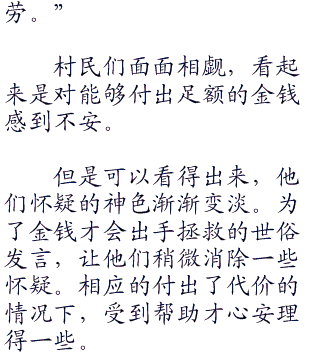 劳。”
村民们面面相觑，看起
来是对能够付出足额的金钱
感到不安。
但是可以看得出来，他
们怀疑的神色渐渐变淡。为
了金钱才会出手拯救的世俗
发言，让他们稍微消除一些
怀疑。相应的付出了代价的
情况下，受到帮助才心安理
得一些。